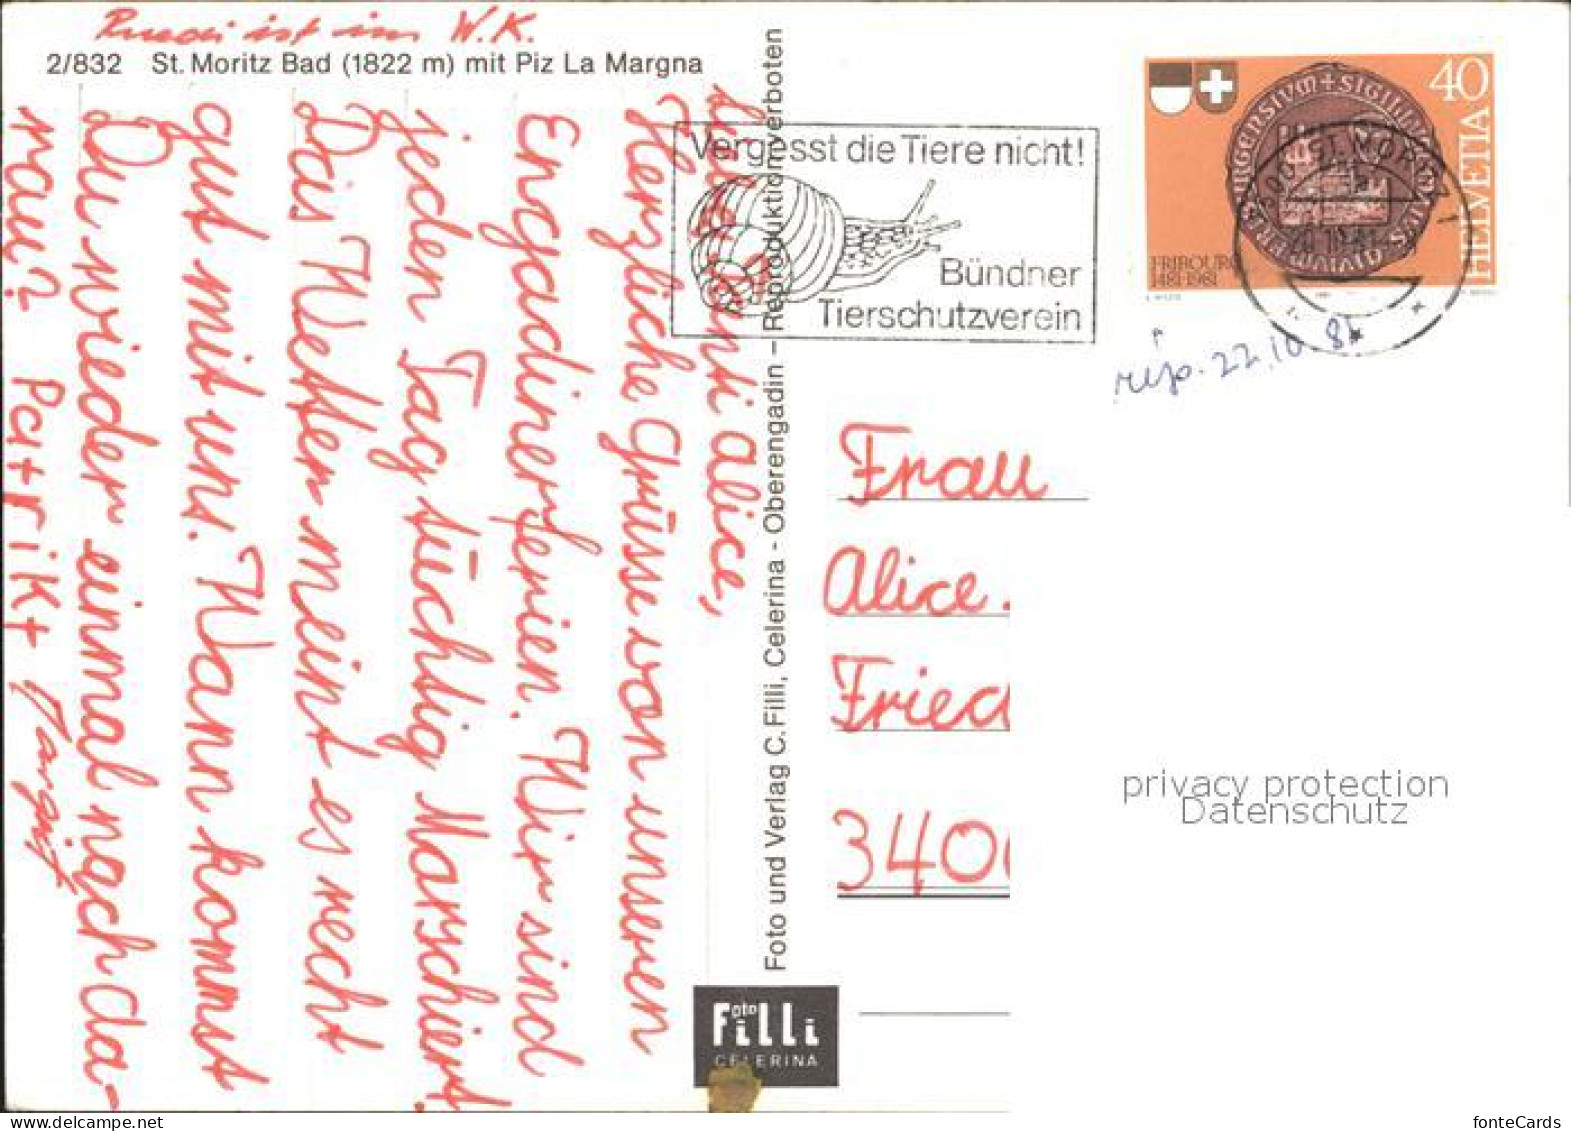 Ruedi ist im W.K.
2/832 St. Moritz Bad (1822 m) mit Piz La Margna
Alice,
Herzliche Grüsse von unseren
Engadinerferien. Wir sind
jeden Tag tüchtig Marschiert.
Das Wetter meint es recht
gut mit uns. Wann kommst
Du wieder einmal nach da-
Patrikt Margrit
Foto und Verlag C. Filli, Celerina - Oberengadin – Reproduktion verboten
Vergesst die Tiere nicht!
Bündner
Tierschutzverein
40
HELVETIA
FRIBOURG
1481-1981
ST. MORITZ 1
20.10.81
rép. 22.10.81
Frau
Alice.
Fried
3400
privacy protection
Datenschutz
Foto
Filli
CELERINA
fonteCards